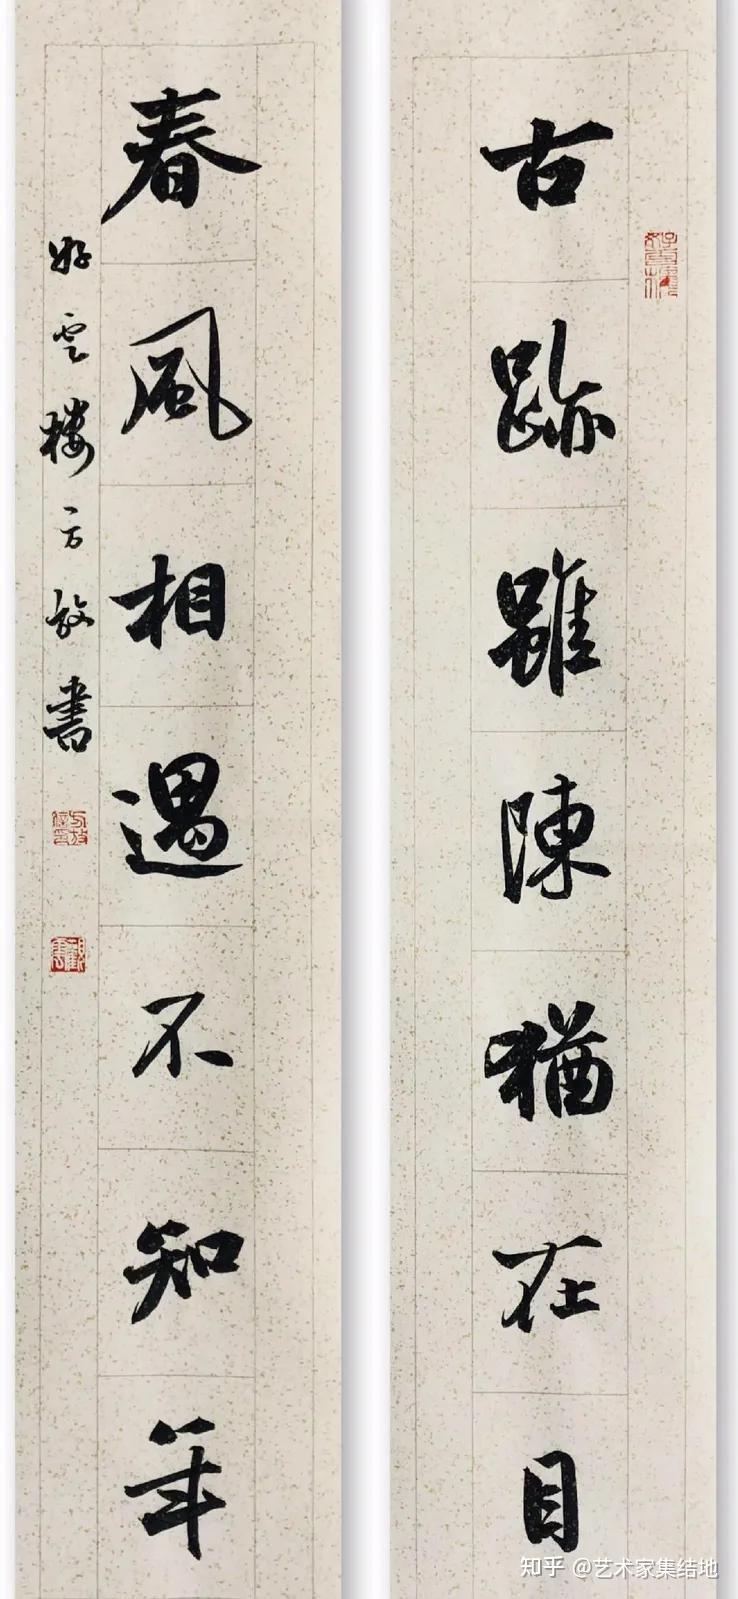 古跡雖陳猶在目
春風相遇不知年
好雲樓方放書
知乎 @艺术家集结地